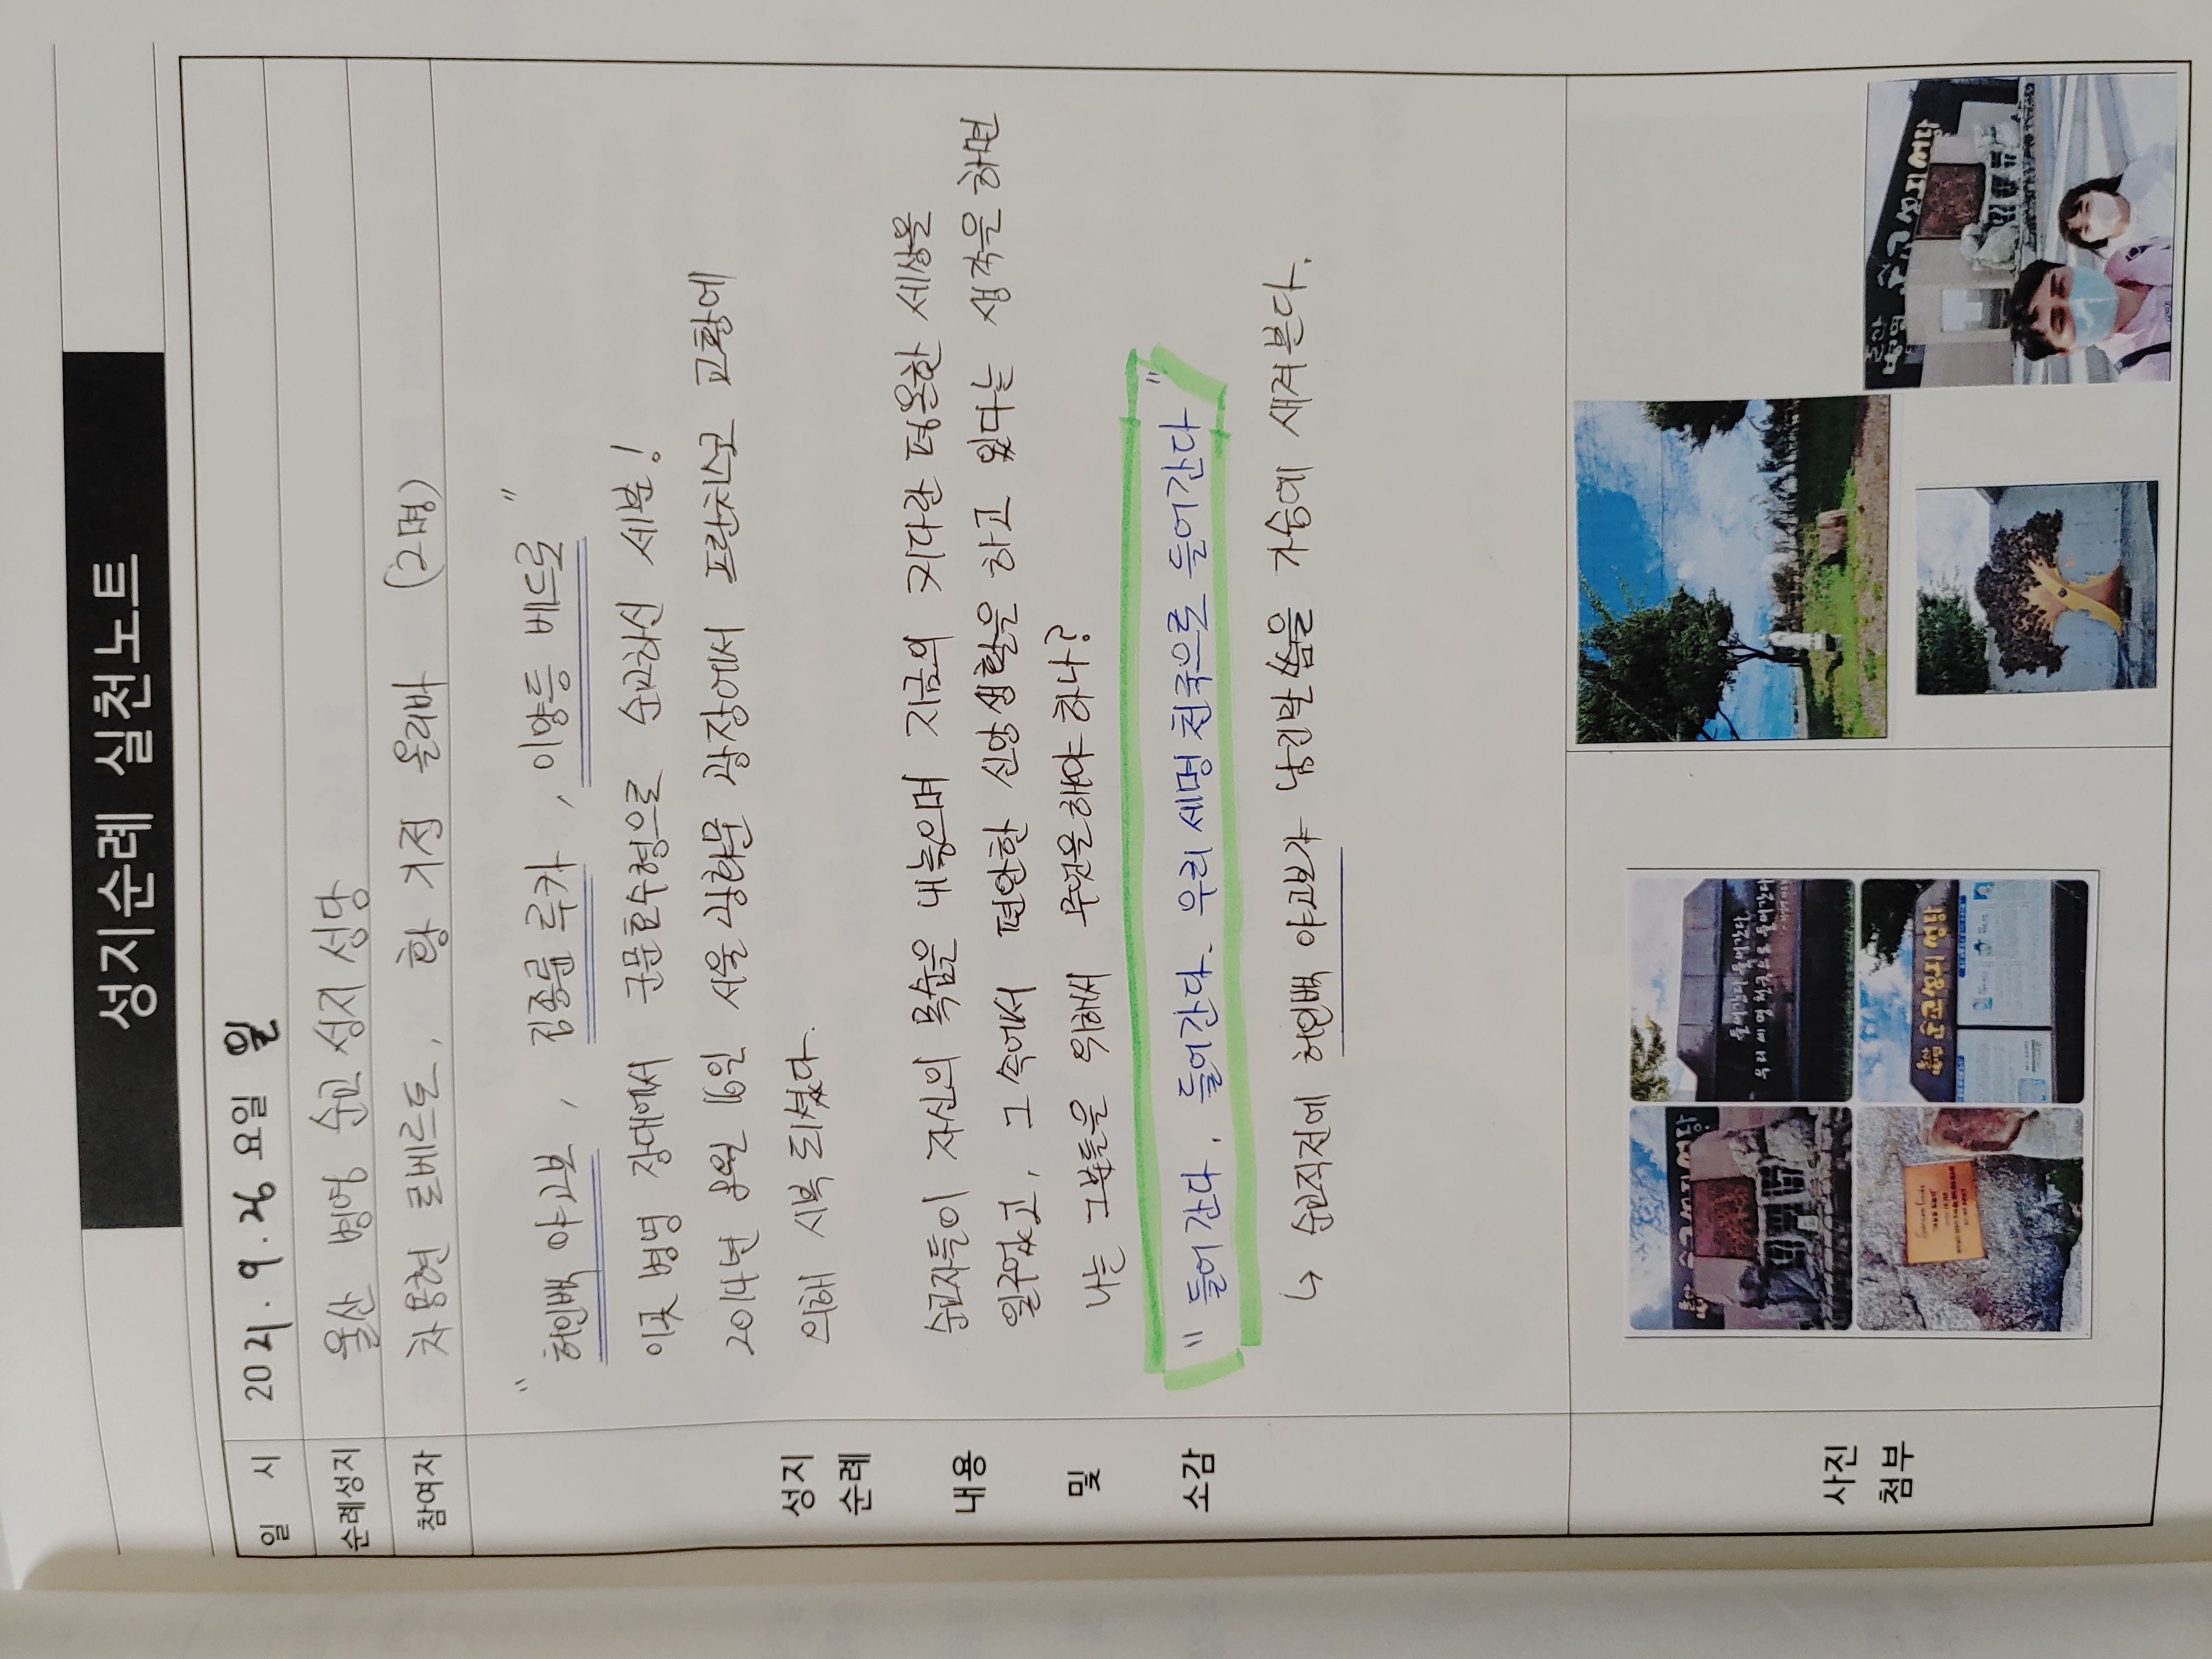 성지순례 실천노트
일 시 2021. 9. 26 요일 일
순례성지 울산 병영 순교 성지 성당
참여자 차용현 로베르도, 황 거정 올리바 (2명)
성지
순례
내용
및
소감
" 허인백 야고보, 김종륜 루카, 이양등 베드로 "
이곳 병영 장대에서 군문효수형으로 순교하신 세분!
2014년 8월 16일 서울 광화문 광장에서 프란치스코 교황에
의해 시복 되셨다.
순교자들이 자신의 목숨을 내놓으며 지금의 커다란 평온한 세상을
일구었고, 그 속에서 편안한 신앙생활을 하고 있다는 생각을 하면
나는 그분들을 위해서 무엇을해야 하나?
" 들어간다, 들어간다. 우리 세명 천국으로 들어간다 "
↳ 순교직전에 허인백 야고보가 남긴말씀을 가슴에 새겨본다.
사진
첨부
순교성지성당
들어간다 들어간다
우리 세 명 천국으로 들어간다
순교성지성당
울산
병영 순교성지성당